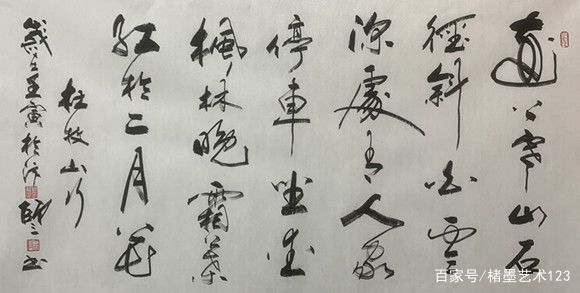 遠上寒山石
徑斜白雲
深處有人家
停車坐愛
楓林晚霜葉
紅於二月花
杜牧山行
歲之壬寅於
百家号/楮墨艺术123